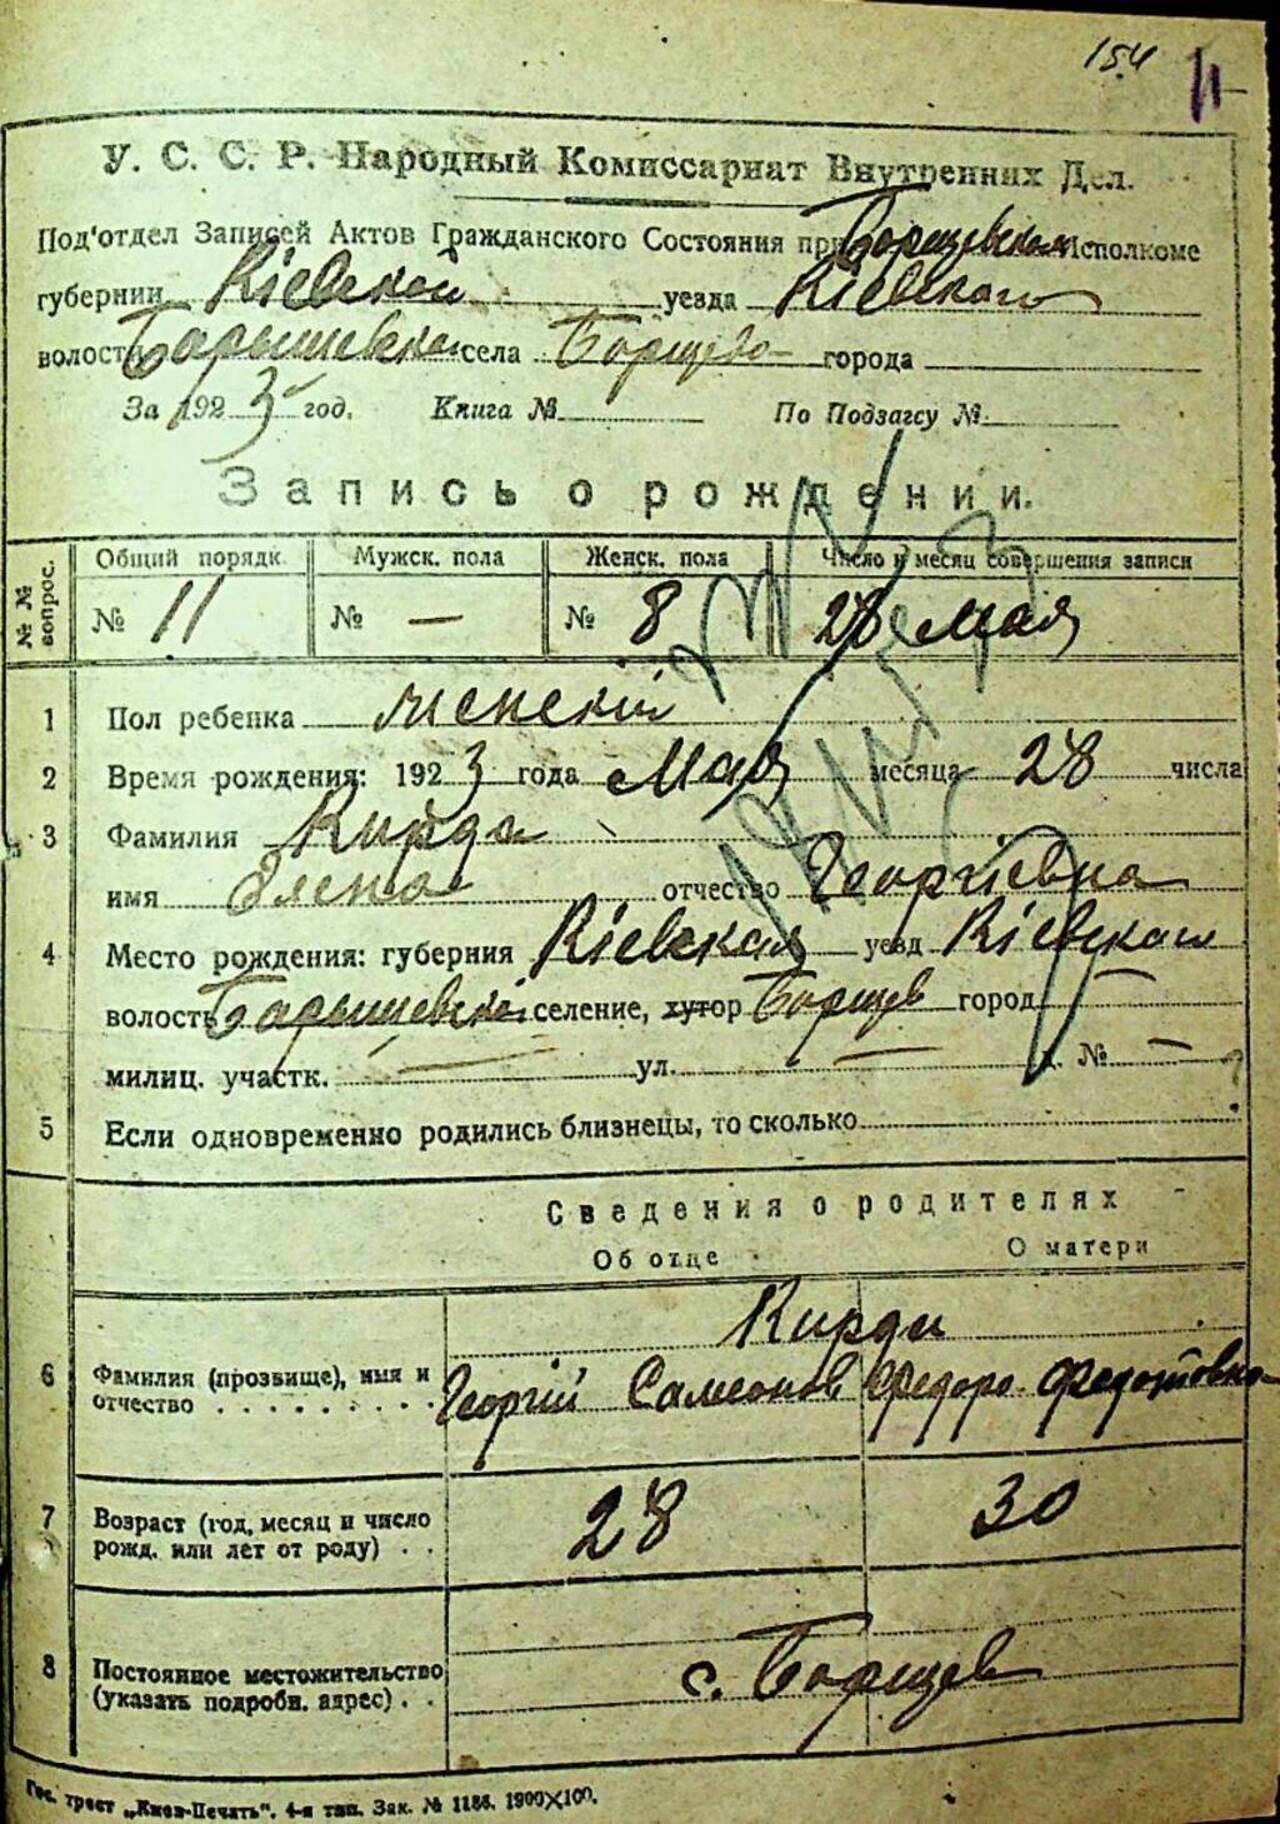 154 11
У. С. С. Р. Народный Комиссариат Внутренних Дел.
Под'отдел Записей Актов Гражданского Состояния при Борщевском Исполкоме
губернии Кіевской уезда Кіевского
волости Барышевской села Борщево города
За 1923 год. Книга № По Подзагсу №
Запись о рождении.
№ № вопрос. Общий порядк. Мужск. пола Женск. пола Число и месяц совершения записи
№ 11 № — № 8 28 Мая
1 Пол ребенка женскій
2 Время рождения: 1923 года Мая месяца 28 числа
3 Фамилия Кирда
имя Елена отчество Георгіевна
4 Место рождения: губерния Кіевская уезд Кіевского
волость Барышевской селение, хутор Борщев город —
милиц. участк. — ул. — д. № —
5 Если одновременно родились близнецы, то сколько
Сведения о родителях
Об отце О матери
Кирди
6 Фамилия (прозвище), имя и отчество . . . . . . . . . Георгій Самсонов Федора Федотовна
7 Возраст (год, месяц и число рожд. или лет от роду) . . 28 30
8 Постоянное местожительство (указать подробн. адрес) . . с. Борщев
Гос. трест „Киев-Печать“. 4-я тип. Зак. № 1186. 1900×100.